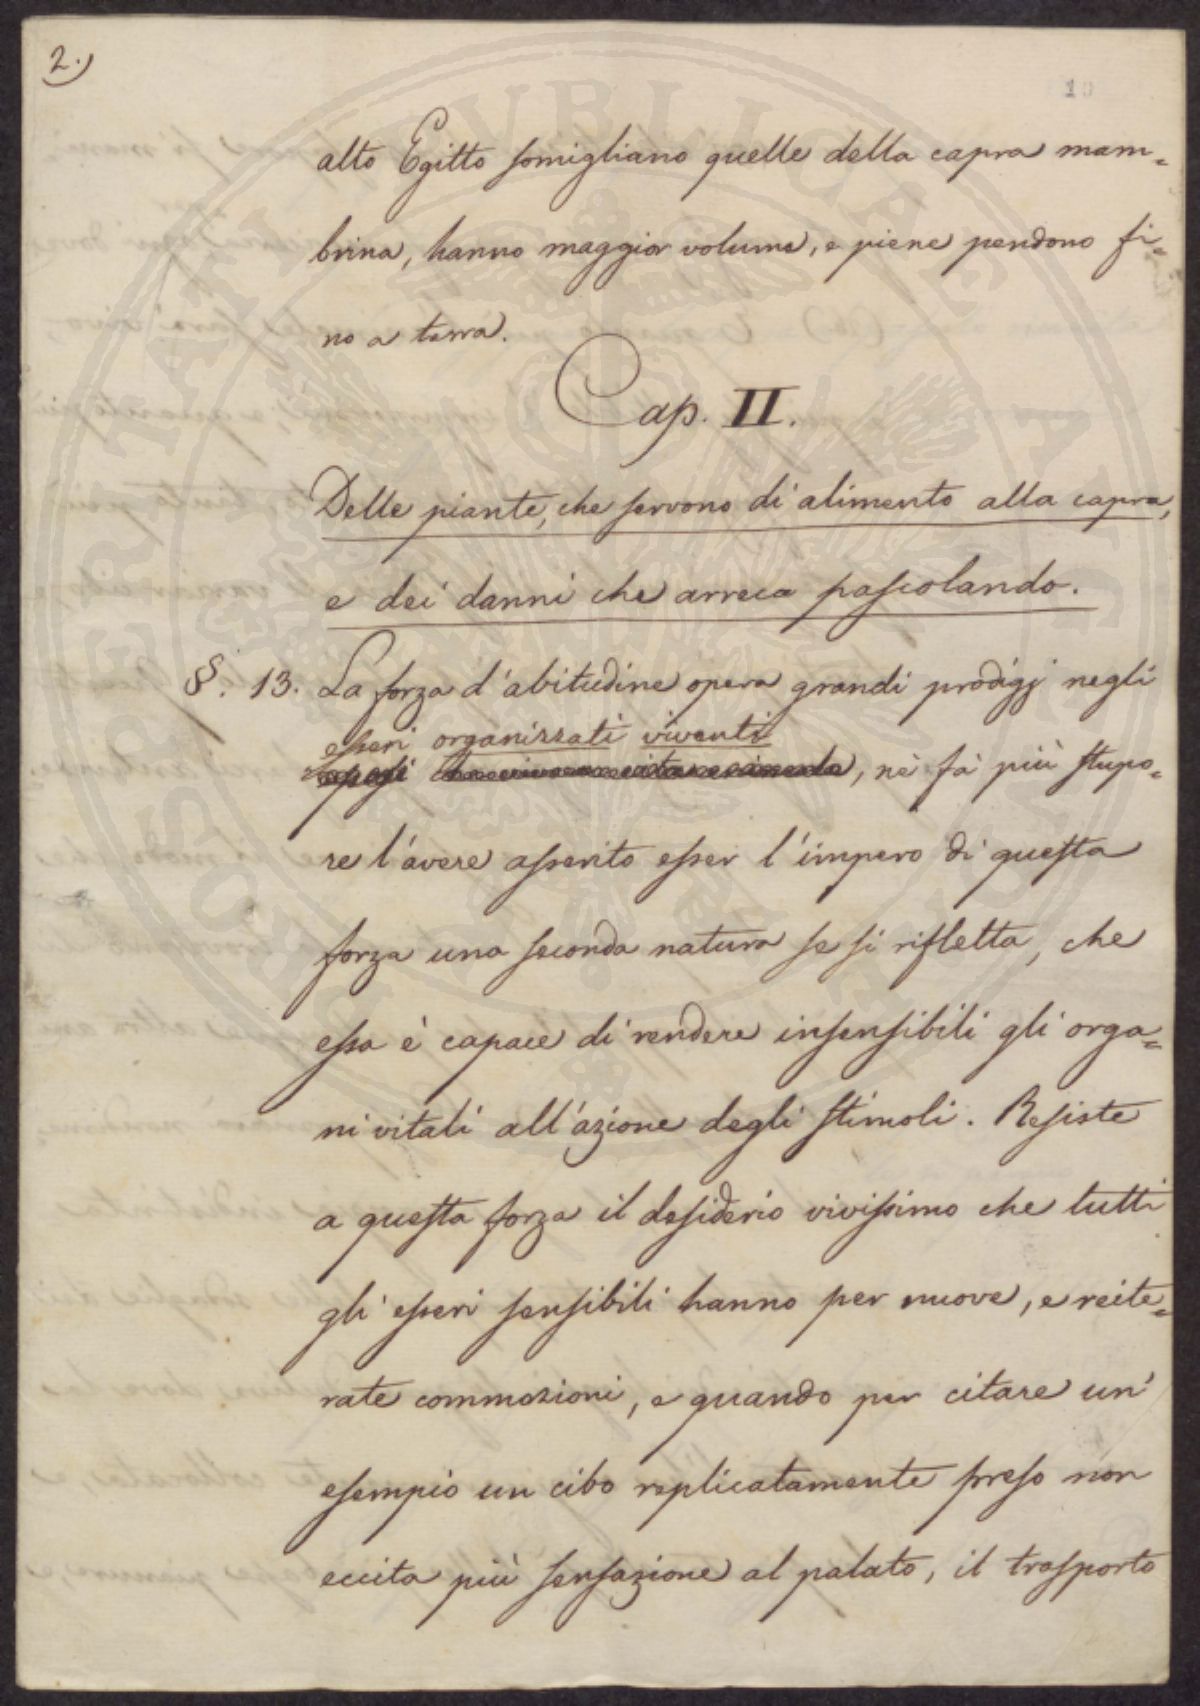 2.
10
alto Egitto somigliano quelle della capra mam=
brina, hanno maggior volume, e piene pendono fi=
no a terra.
Cap. II.
Delle piante, che servono di alimento alla capra,
e dei danni che arreca pascolando.
§. 13. La forza d'abitudine opera grandi prodigj negli
esseri organizzati viventi
, nè fà più stupo=
re l'avere asserito esser l'impero di questa
forza una seconda natura se si rifletta, che
essa è capace di rendere insensibili gli orga=
ni vitali all'azione degli stimoli. Resiste
a questa forza il desiderio vivissimo che tutti
gli esseri sensibili hanno per nuove, e reite=
rate commozioni, e quando per citare un'
esempio un cibo replicatamente preso non
eccita più sensazione al palato, il trasporto